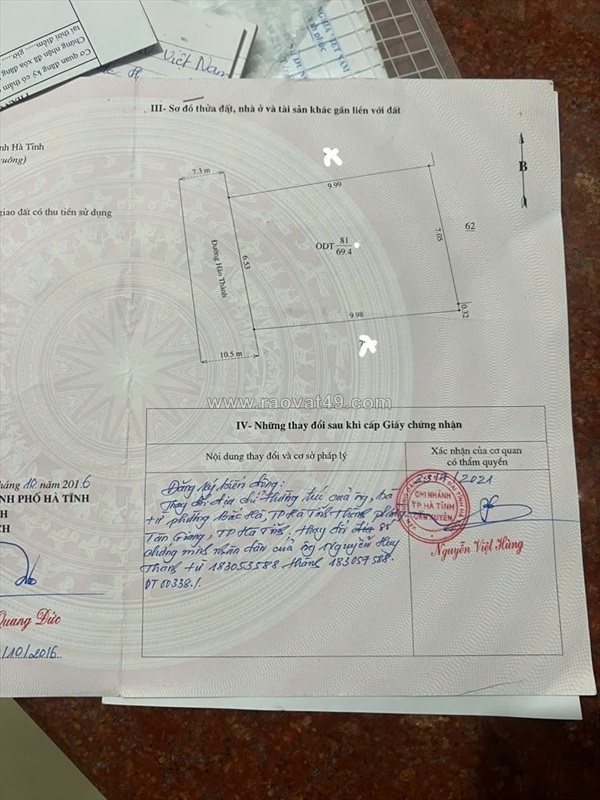 Việt Nam
III- Sơ đồ thửa đất, nhà ở và tài sản khác gắn liền với đất
nh Hà Tĩnh
uông)
giao đất có thu tiền sử dụng
7.3 m
9.99
B
62
ODT 81
69.4
7.05
6.53
Đường Hào Thành
0.32
9.98
7
10.5 m
www.raovat49.com
IV- Những thay đổi sau khi cấp Giấy chứng nhận
Nội dung thay đổi và cơ sở pháp lý
Xác nhận của cơ quan
có thẩm quyền
háng 10 năm 2016
NH PHỐ HÀ TĨNH
H
CH
Quang Đức
/10/2016
Đăng ký biến động:
Thay đổi địa chỉ thường trú của ông, bà
từ phường Bắc Hà, TP Hà Tĩnh thành phường
Tân Giang, TP Hà Tĩnh, thay đổi số
chứng minh nhân dân của ông Nguyễn Huy
Thắng từ 183053588 thành 183057588.
ĐT 00338./.
/2021
CHI NHÁNH
TP HÀ TĨNH
Nguyễn Việt Hùng